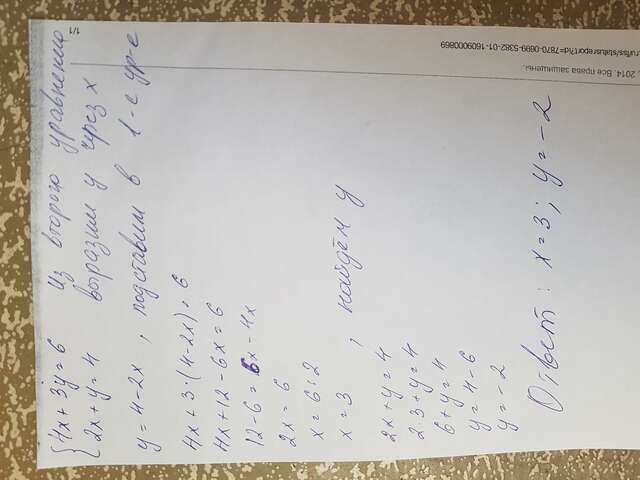 {4x + 3y = 6 из второго уравнению
2x + y = 4 выразим y через x
y = 4 - 2x , подставим в 1-е ур-е
4x + 3·(4-2x) = 6
4x + 12 - 6x = 6
12 - 6 = 6x - 4x
2x = 6
x = 6:2
x = 3 , найдём y
2x + y = 4
2·3 + y = 4
6 + y = 4
y = 4 - 6
y = -2
Ответ: x = 3; y = -2
, 2014. Все права защищены.
ru/tss/statusreport?id=7870-0699-5382-01-1609000869
1/1